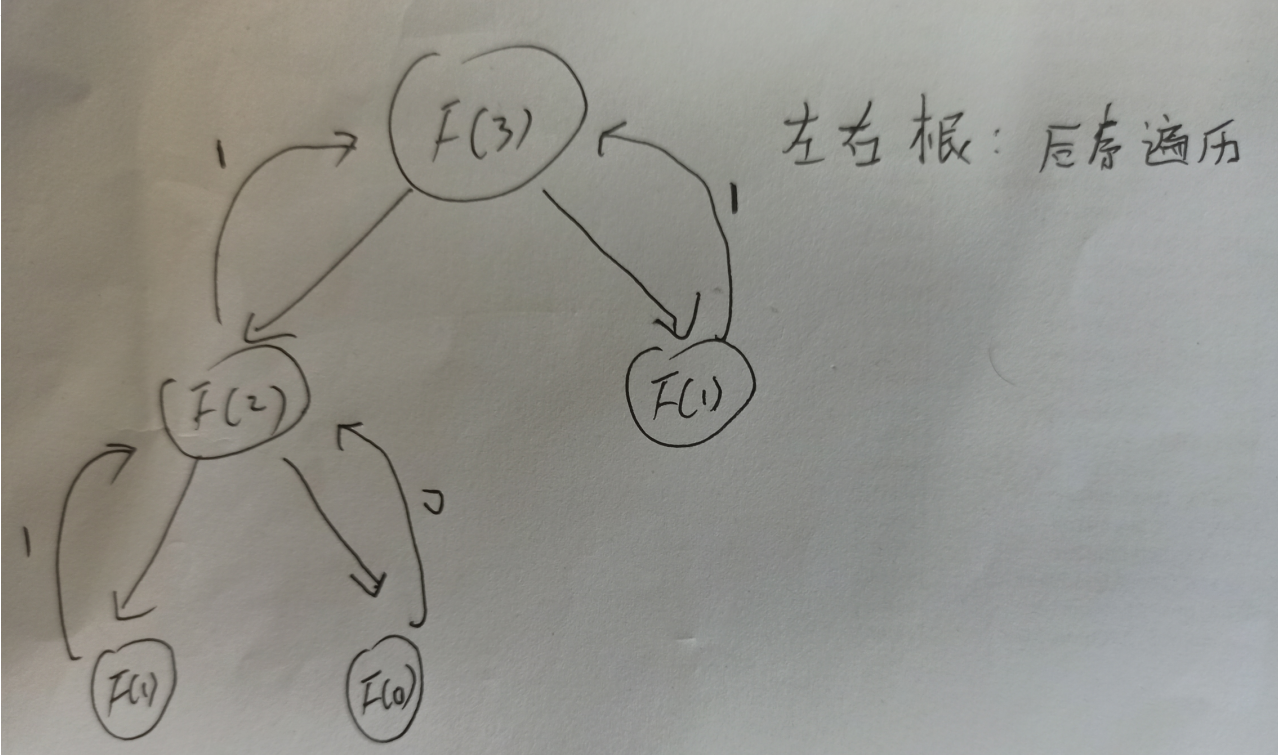 F(3)
左右根：后序遍历
1
1
F(2)
F(1)
1
0
F(1)
F(0)